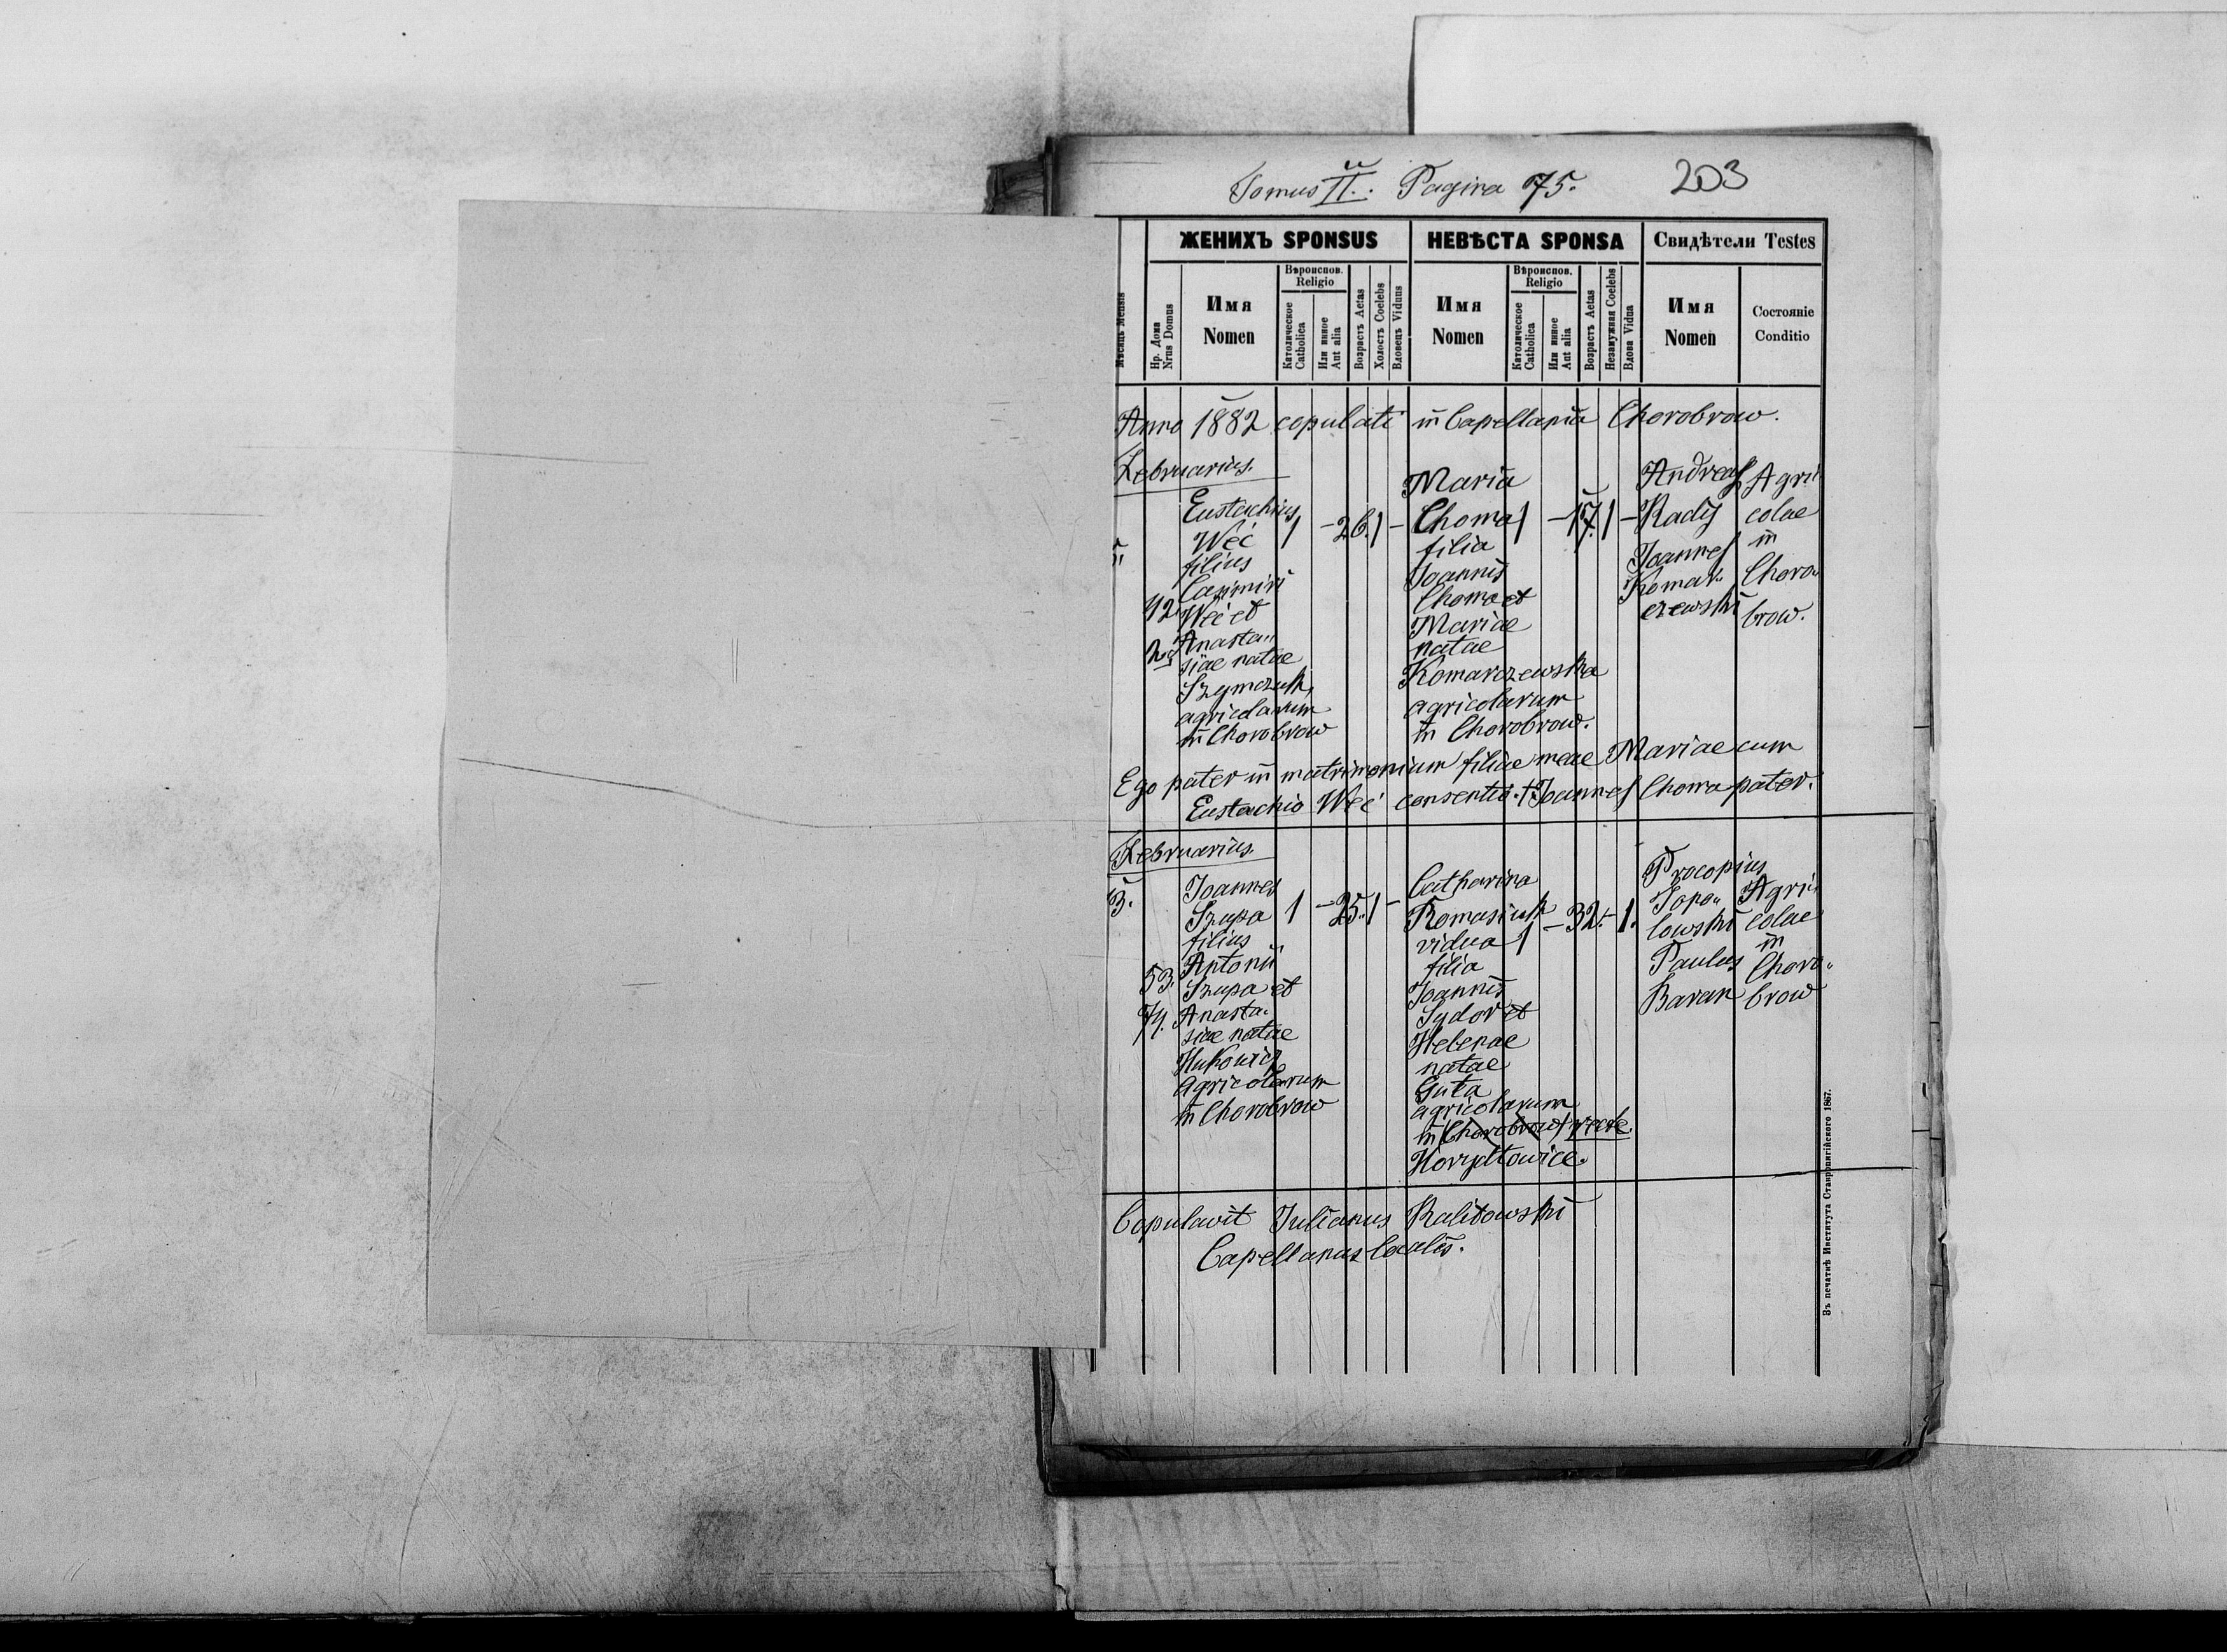 Tomus II. Pagina 75.
203
ЖЕНИХЪ SPONSUS
НЕВѢСТА SPONSA
Свидѣтели Testes
Мѣсяцъ Mensis
Нр. Дома
Nrus Domus
Имя
Nomen
Вѣроиспов.
Religio
Католическое
Catholica
Или инное
Aut alia
Возрастъ Aetas
Холостъ Coelebs
Вдовецъ Viduus
Имя
Nomen
Вѣроиспов.
Religio
Католическое
Catholica
Или инное
Aut alia
Возрастъ Aetas
Незамужная Coelebs
Вдова Vidua
Имя
Nomen
Состояніе
Conditio
Anno 1882 copulati in Capellania Chorobrow.
Februarius.
5.
42
2.
Eustachius
Weć
filius
Casimiri
Weć et
Anasta„
siae natae
Szymczuk,
agricolarum
in Chorobrow
1 - 26. 1 -
Maria
Choma
filia
Joannis
Choma et
Mariae
natae
Komarczewska
agricolarum
in Chorobrow.
1 - 17. 1 -
Andreas
Kadij
Joannes
Komar„
czewski
Agri„
colae
in
Choro„
brow.
Ego pater in matrimonium filiae meae Mariae cum
Eustachio Weć consentio. + Joannes Choma pater.
Februarius.
3.
53.
74.
Joannes
Szupa
filius
Antonii
Szupa et
Anasta„
siae natae
Hukowicz
agricolarum
in Chorobrow
1 - 25. 1 -
Catharina
Romasiuk
vidua
filia
Joannis
Sydor et
Helenae
natae
Guta
agricolarum
in Chorobrow recte.
Horydtowice.
1 - 32. - 1.
Procopius
Sopo„
lowski
Paulus
Baran
Agri„
colae
in
Choro„
brow
Copulavit Julianus Kalitowski
Capellanus localis.
Зъ печатнѣ Института Ставропигійского 1867.